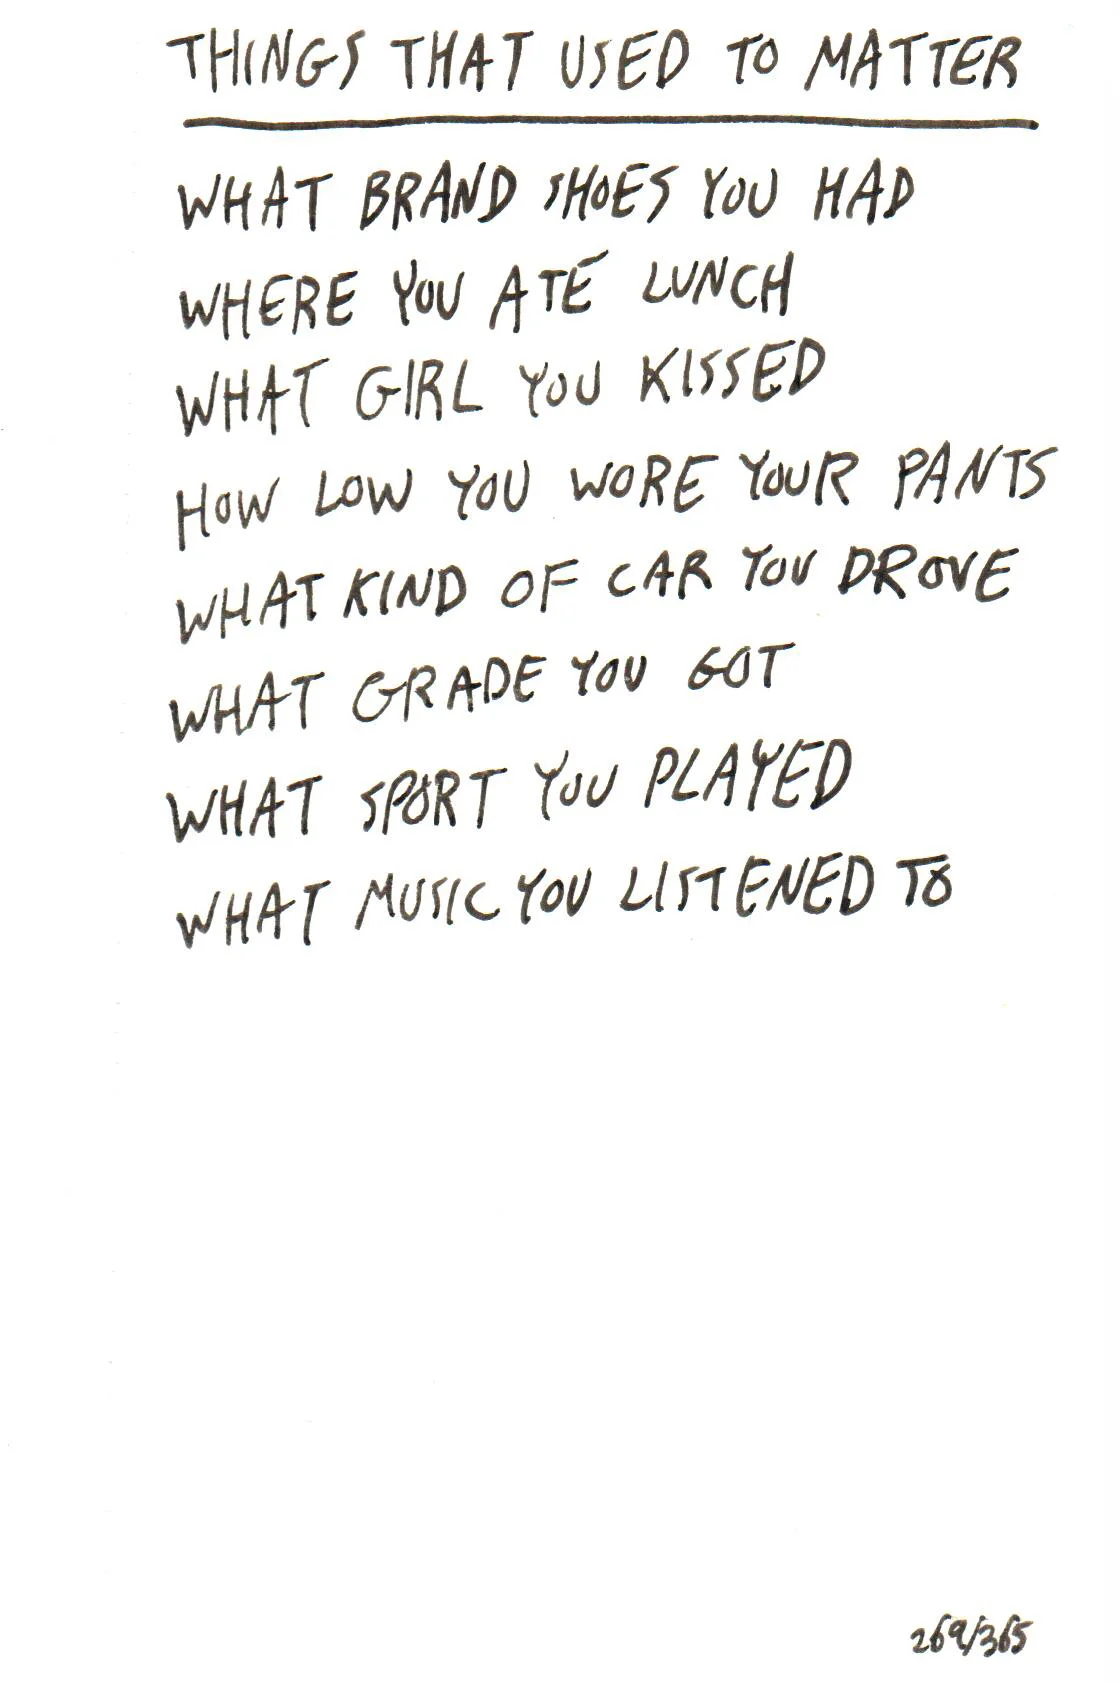 THINGS THAT USED TO MATTER
WHAT BRAND SHOES YOU HAD
WHERE YOU ATE LUNCH
WHAT GIRL YOU KISSED
HOW LOW YOU WORE YOUR PANTS
WHAT KIND OF CAR YOU DROVE
WHAT GRADE YOU GOT
WHAT SPORT YOU PLAYED
WHAT MUSIC YOU LISTENED TO
269/365